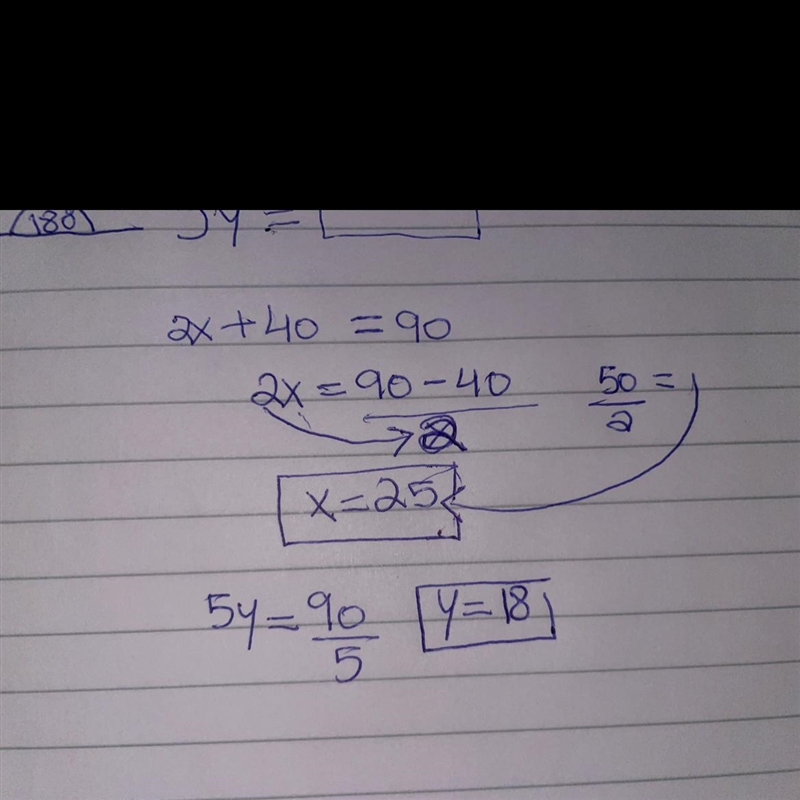 (180) 5y =
2x + 40 = 90
2x = 90 - 40 / 2
50/2 =
x = 25
5y = 90/5 y = 18